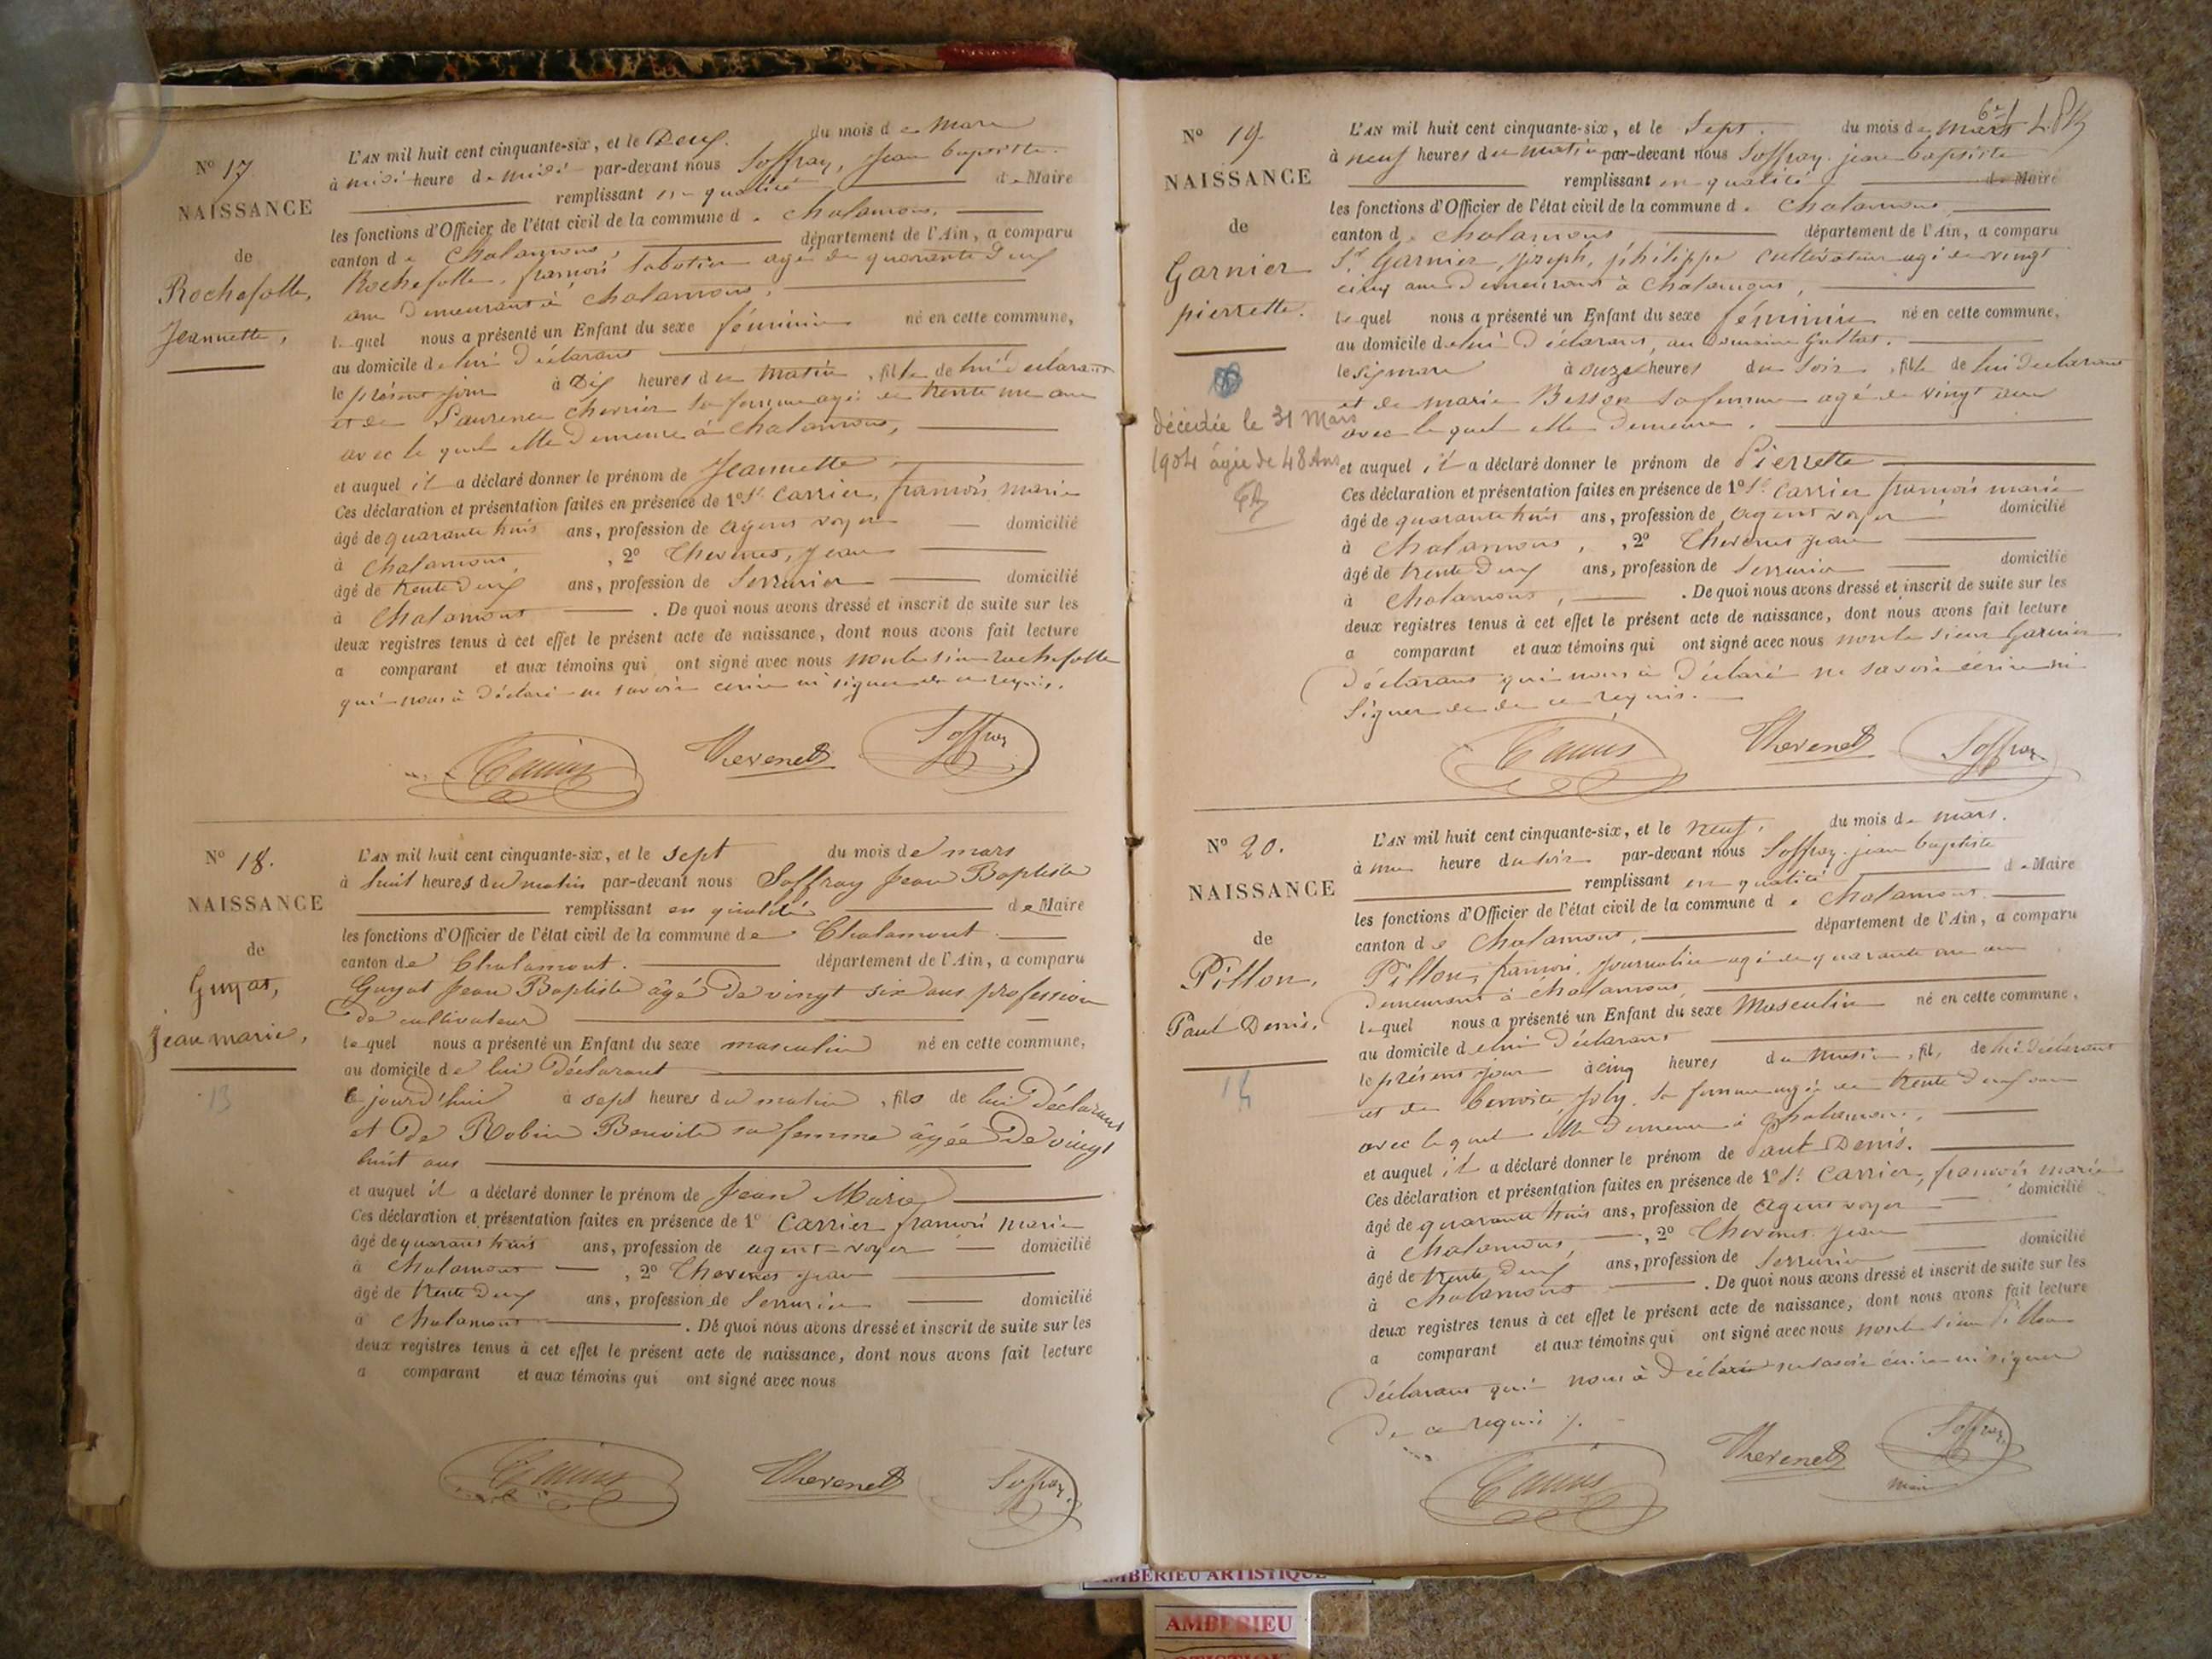 N° 17.
NAISSANCE
de
Rochefolle,
Jeannette,
L'AN mil huit cent cinquante-six, et le Deux. du mois de Mars
à midi heure de midi par-devant nous Soffray, Jean baptiste.
remplissant en qualité de Maire
les fonctions d'Officier de l'état civil de la commune de Chalamont,
canton de Chalamont, département de l'Ain, a comparu
Rochefolle, françois sabotier agé de quarante deux
ans demeurant à Chalamont,
lequel nous a présenté un Enfant du sexe féminin né en cette commune,
au domicile de lui déclarant
le présent jour à Dix heures du matin, fille de lui déclarant
et de Laurence Chevrier sa femme agée de trente un ans
avec le quel elle demeure à Chalamont,
et auquel il a déclaré donner le prénom de Jeannette
Ces déclaration et présentation faites en présence de 1° Sr Carrier, françois marie
âgé de quarante trois ans, profession de agent voyer domicilié
à Chalamont, , 2° Thevenet, Jean
âgé de trente deux ans, profession de Serrurier domicilié
à Chalamont . De quoi nous avons dressé et inscrit de suite sur les
deux registres tenus à cet effet le présent acte de naissance, dont nous avons fait lecture
a comparant et aux témoins qui ont signé avec nous non le sieur rochefolle
qui nous à déclaré ne savoir écrire ni signer de ce requis.
Thevenet
Soffray
N° 18.
NAISSANCE
de
Guyat,
Jean marie,
13
L'AN mil huit cent cinquante-six, et le sept du mois de mars
à huit heures du matin par-devant nous Soffray Jean Baptiste
remplissant en qualité de Maire
les fonctions d'Officier de l'état civil de la commune de Chalamont
canton de Chalamont. département de l'Ain, a comparu
Guyat Jean Baptiste âgé de vingt six ans profession
de cultivateur
lequel nous a présenté un Enfant du sexe masculin né en cette commune,
au domicile de lui déclarant
ce jourd'hui à sept heures du matin, fils de lui déclarant
et de Robin Benoite sa femme âgée de vingt
huit ans
et auquel il a déclaré donner le prénom de Jean Marie
Ces déclaration et présentation faites en présence de 1° Carrier françois marie
âgé de quarant trois ans, profession de agent voyer domicilié
à Chalamont , 2° Thevenet jean
âgé de trente deux ans, profession de Serrurier domicilié
à Chalamont . De quoi nous avons dressé et inscrit de suite sur les
deux registres tenus à cet effet le présent acte de naissance, dont nous avons fait lecture
a comparant et aux témoins qui ont signé avec nous
Thevenet
Soffray
N° 19
NAISSANCE
de
Garnier
pierrette.
décédée le 31 Mars
1904 âgée de 48 Ans
L'AN mil huit cent cinquante-six, et le Sept. du mois de mars
à neuf heures du matin par-devant nous Soffray jean baptiste
remplissant en qualité de Maire
les fonctions d'Officier de l'état civil de la commune de Chalamont
canton de Chalamont département de l'Ain, a comparu
Sr Garnier, joseph, philippe Cultivateur agé de vingt
cinq ans Demeurant à Chalamont,
lequel nous a présenté un Enfant du sexe féminin né en cette commune,
au domicile de lui Déclarant, au Domaine
le six mars à onze heures du Soir, fille de lui Déclarant
et de marie Besson sa femme agé de vingt ans
avec lequel elle Demeure.
et auquel il a déclaré donner le prénom de Pierrette
Ces déclaration et présentation faites en présence de 1° Sr Carrier françois marie
âgé de quarante trois ans, profession de agent voyer domicilié
à Chalamont, , 2° Thevenet jean
âgé de trente Deux ans, profession de Serrurier domicilié
à Chalamont, . De quoi nous avons dressé et inscrit de suite sur les
deux registres tenus à cet effet le présent acte de naissance, dont nous avons fait lecture
a comparant et aux témoins qui ont signé avec nous non le sieur Garnier
déclarant qui nous à Déclaré ne savoir écrire ni
Signer de ce requis.
Thevenet
Soffray
N° 20.
NAISSANCE
de
Pillon,
Paul Denis.
14
L'AN mil huit cent cinquante-six, et le neuf, du mois de mars.
à une heure du soir par-devant nous Soffray jean baptiste
remplissant en qualité de Maire
les fonctions d'Officier de l'état civil de la commune de Chalamont
canton de Chalamont, département de l'Ain, a comparu
Pillon, françois. Journalier agé de quarante un ans
Demeurant à Chalamont,
lequel nous a présenté un Enfant du sexe Masculin né en cette commune,
au domicile de lui Déclarant
le présent jour à cinq heures du Matin, fils de lui Déclarant
et de benoite Joly. sa femme agée de trente Deux ans
avec lequel elle Demeure à Chalamont,
et auquel il a déclaré donner le prénom de Paul Denis.
Ces déclaration et présentation faites en présence de 1° Sr Carrier, françois marie
âgé de quarante trois ans, profession de agent voyer domicilié
à Chalamont, , 2° Thevenet jean
âgé de trente Deux ans, profession de Serrurier domicilié
à Chalamont . De quoi nous avons dressé et inscrit de suite sur les
deux registres tenus à cet effet le présent acte de naissance, dont nous avons fait lecture
a comparant et aux témoins qui ont signé avec nous non le sieur Pillon
Déclarant qui nous à Déclaré ne savoir écrire ni signer
De ce requis
Thevenet
Soffray
AMBERIEU ARTISTIQUE
AMBERIEU
ARTISTIQUE